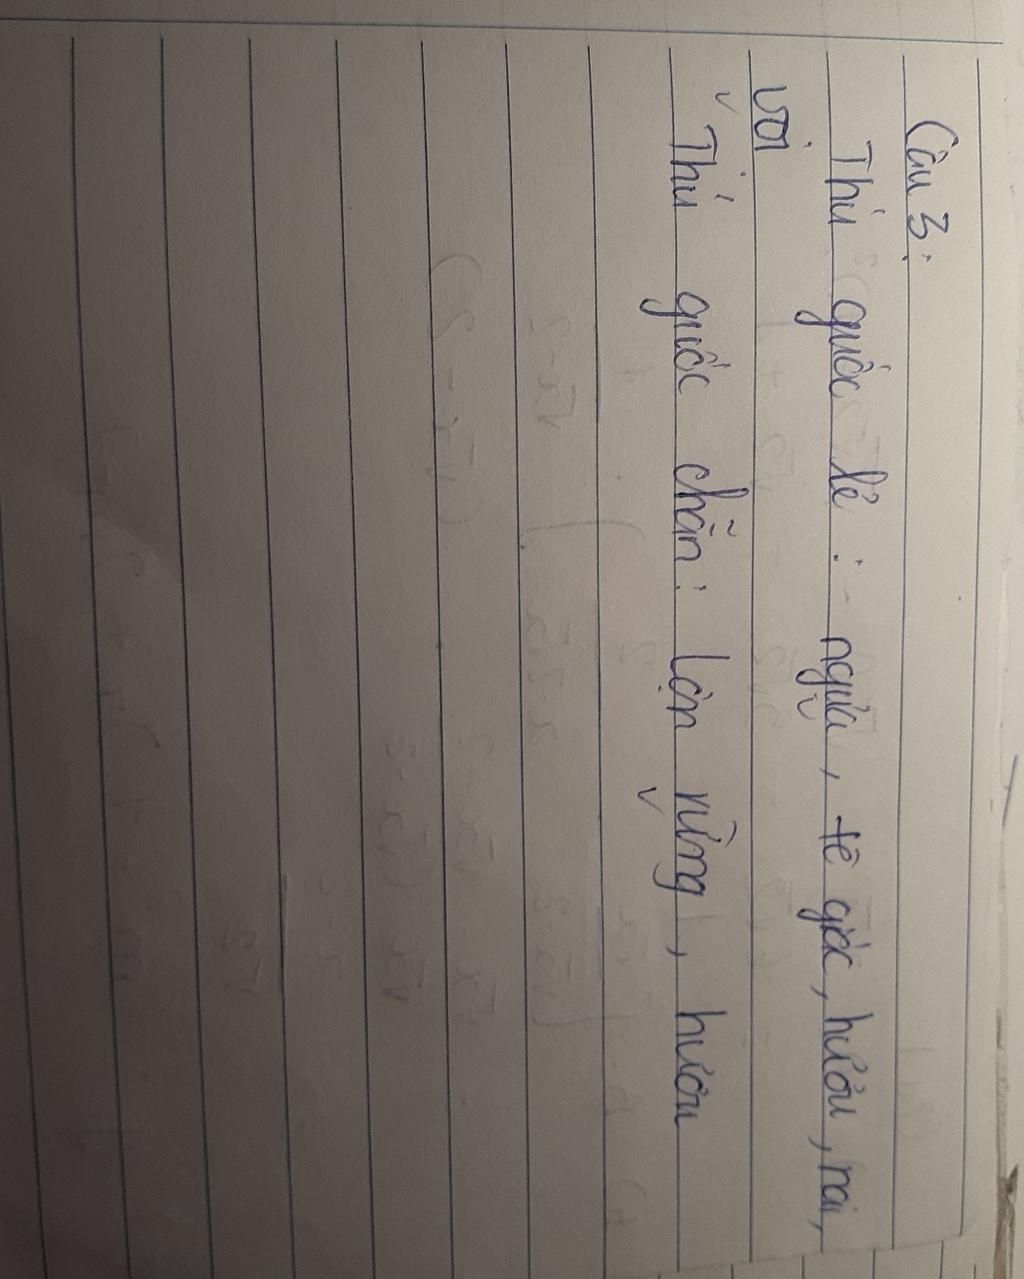 Câu 3:
Thú guốc lẻ : ngựa, tê giác, hươu, nai,
voi
Thú guốc chẵn: lợn rừng, hươu